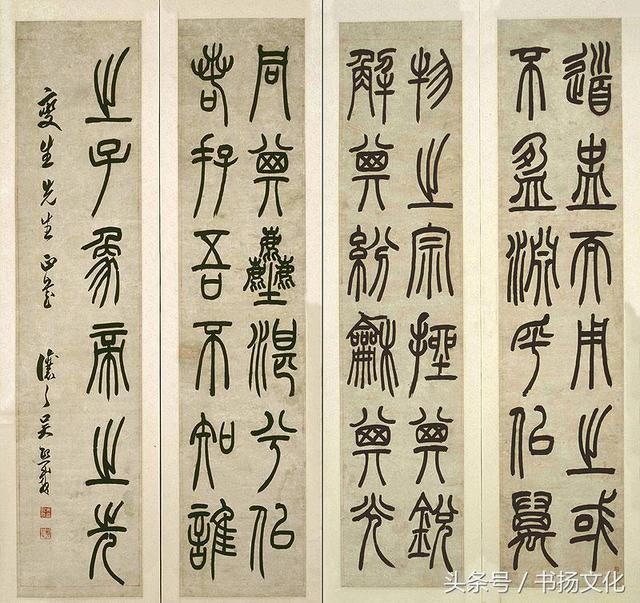 道盅而用之或
不盈淵乎佀萬
物之宗挫其銳
解其紛龢其光
同其塵湛兮佀
若存吾不知誰
之子象帝之先
生先生正篆 讓之吳熙載
头条号 / 书扬文化